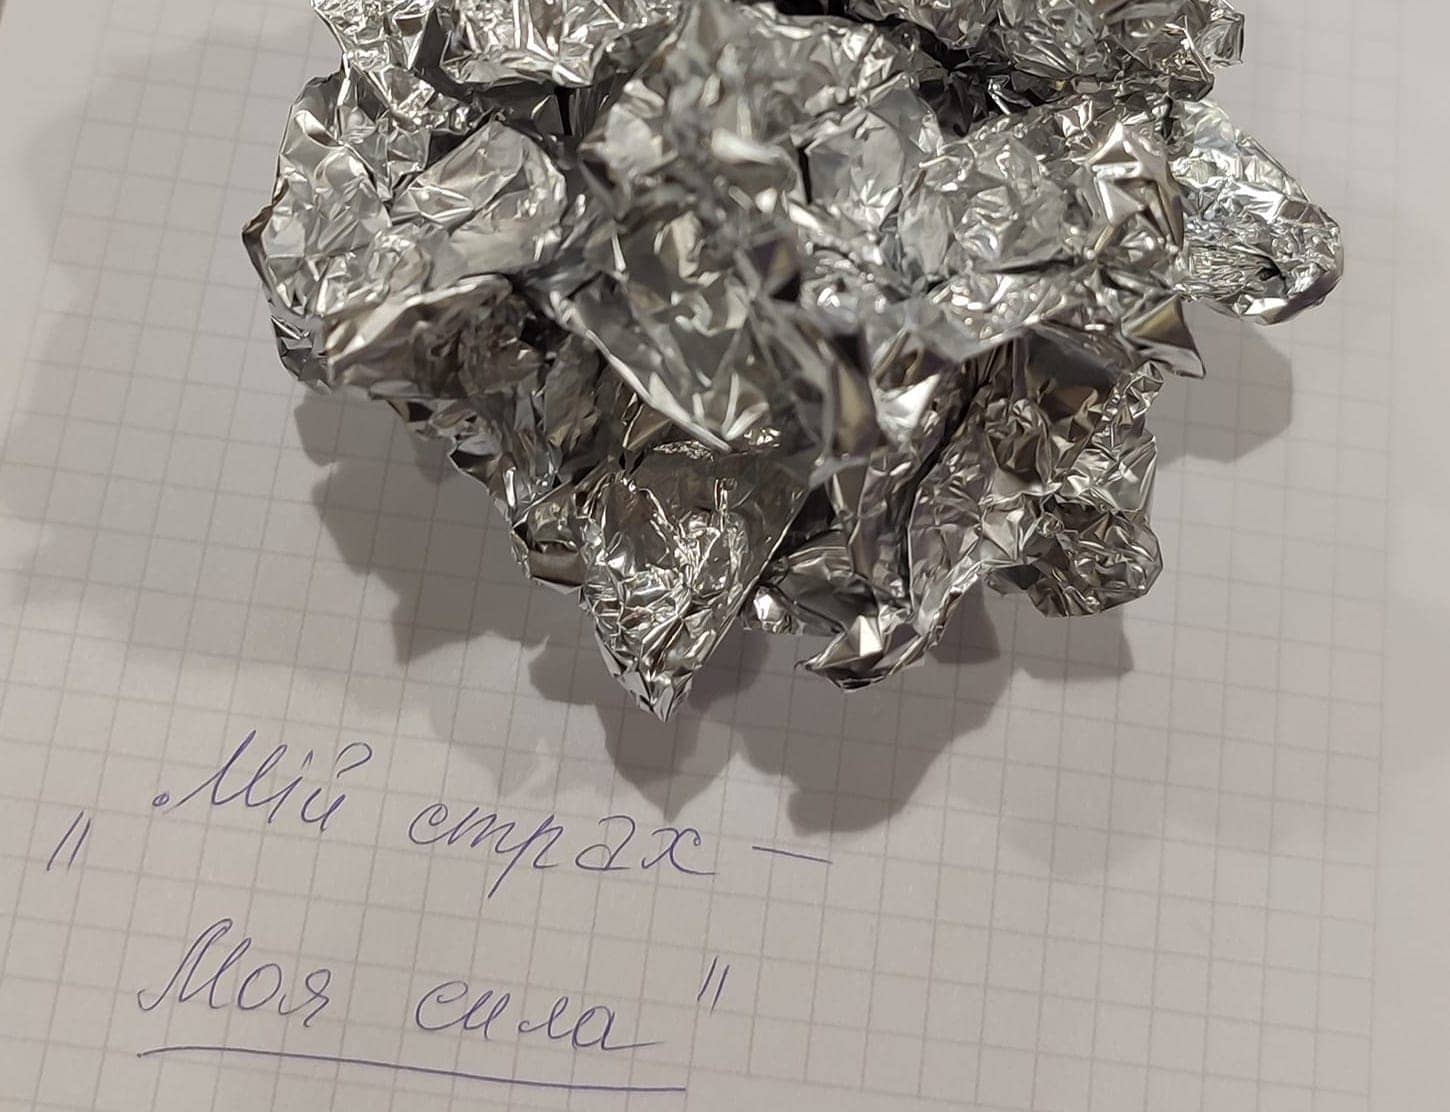 "Мій страх —
Моя сила"